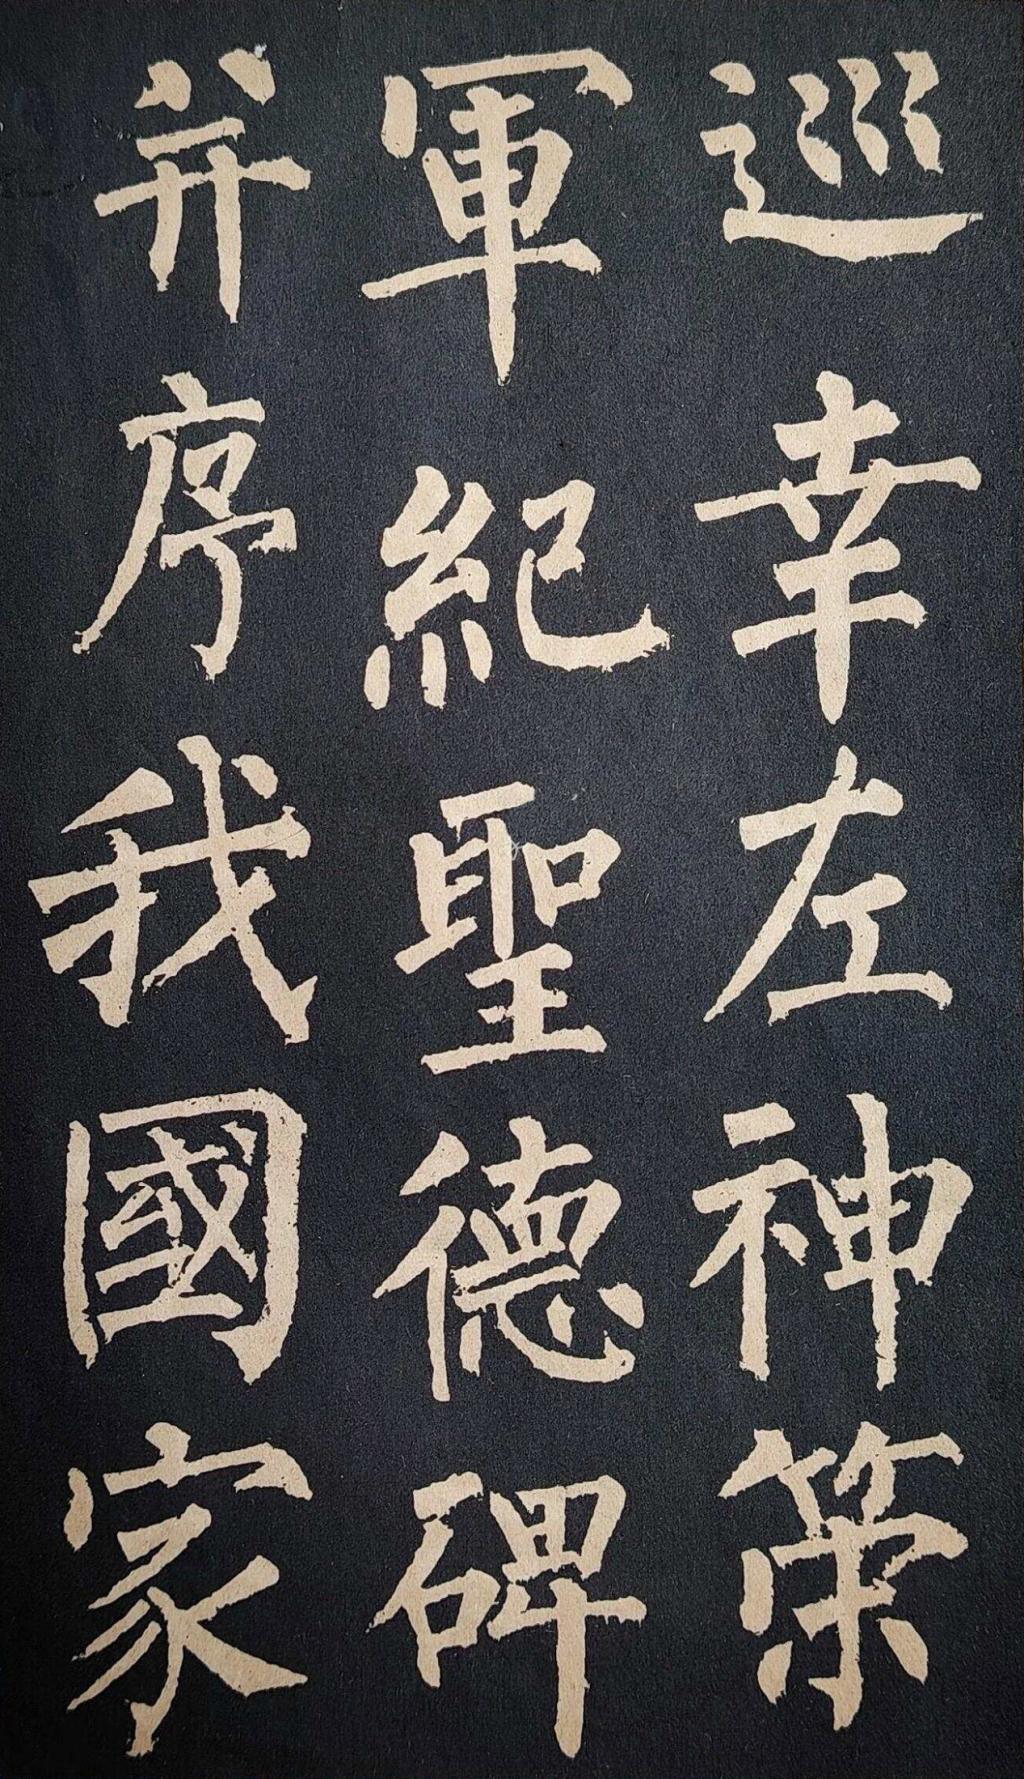 巡幸左神策
軍紀聖德碑
并序我國家